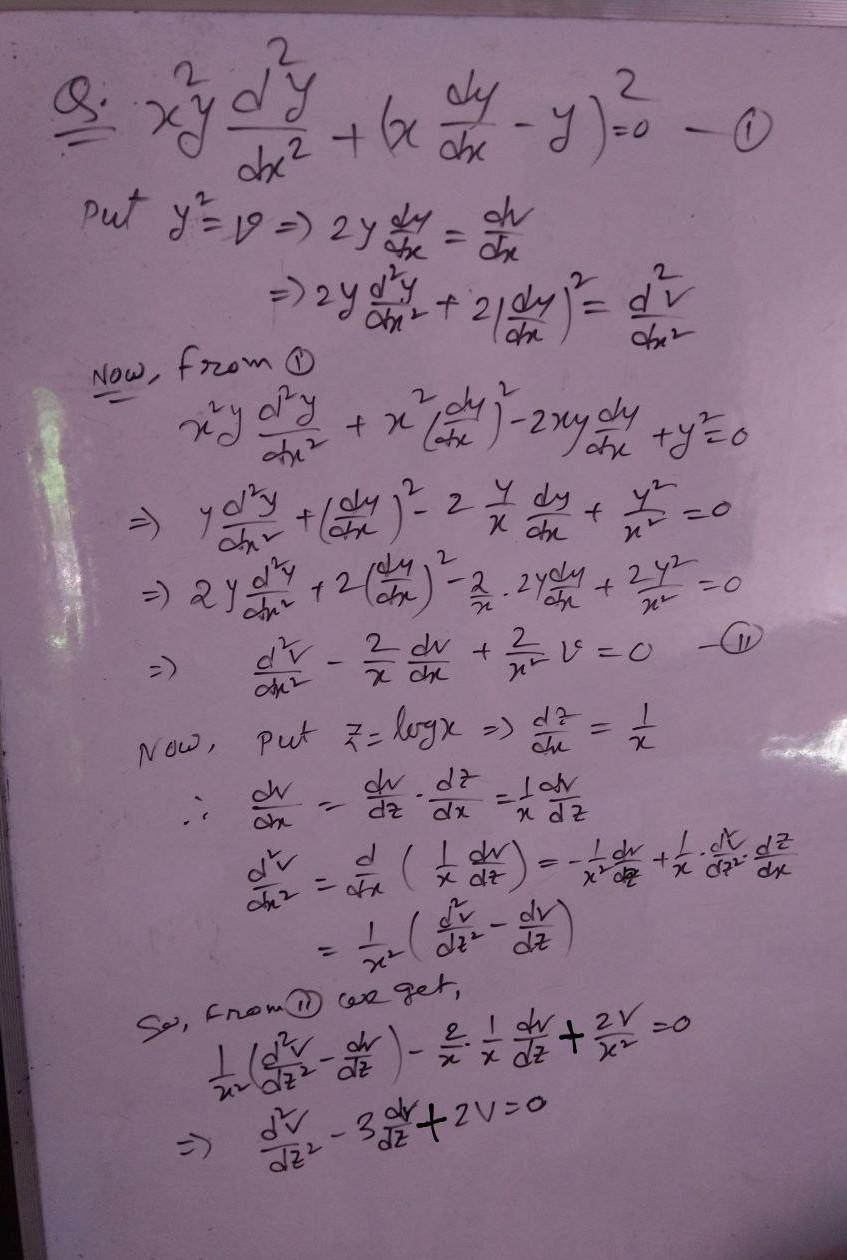 Q. x²y d²y/dx² + (x dy/dx - y)² = 0 — ①
Put y² = v ⇒ 2y dy/dx = dv/dx
⇒ 2y d²y/dx² + 2(dy/dx)² = d²v/dx²
Now, From ①
x²y d²y/dx² + x²(dy/dx)² - 2xy dy/dx + y² = 0
⇒ y d²y/dx² + (dy/dx)² - 2 y/x dy/dx + y²/x² = 0
⇒ 2y d²y/dx² + 2(dy/dx)² - 2/x · 2y dy/dx + 2y²/x² = 0
⇒ d²v/dx² - 2/x dv/dx + 2/x² v = 0 — ⑪
Now, Put z = logx ⇒ dz/dx = 1/x
∴ dv/dx = dv/dz · dz/dx = 1/x dv/dz
d²v/dx² = d/dx (1/x dv/dz) = - 1/x² dv/dz + 1/x · d²v/dz² · dz/dx
= 1/x² (d²v/dz² - dv/dz)
So, From ⑪ we get,
1/x² (d²v/dz² - dv/dz) - 2/x · 1/x dv/dz + 2v/x² = 0
⇒ d²v/dz² - 3 dv/dz + 2v = 0